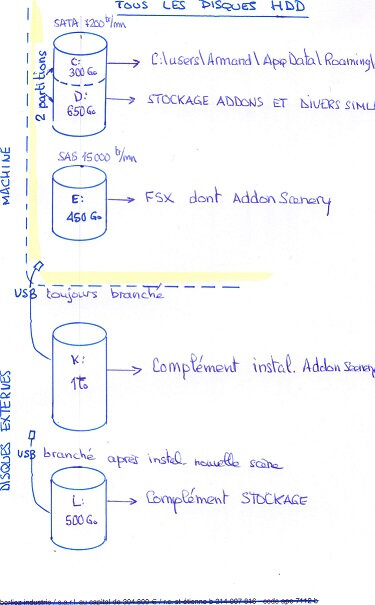 TOUS LES DISQUES HDD
SATA 7200 tr/mn
2 partitions
C:
300 Go
C:\users\Armand\AppData\Roaming\
D:
650 Go
STOCKAGE ADDONS ET DIVERS SIM
MACHINE
SAS 15000 tr/mn
E:
450 Go
FSX dont Addon Scenery
USB toujours branché
K:
1to
Complément instal. Addon Scenery
DISQUES EXTERNES
USB branché après instal. nouvelle scène
L:
500 Go
Complément STOCKAGE